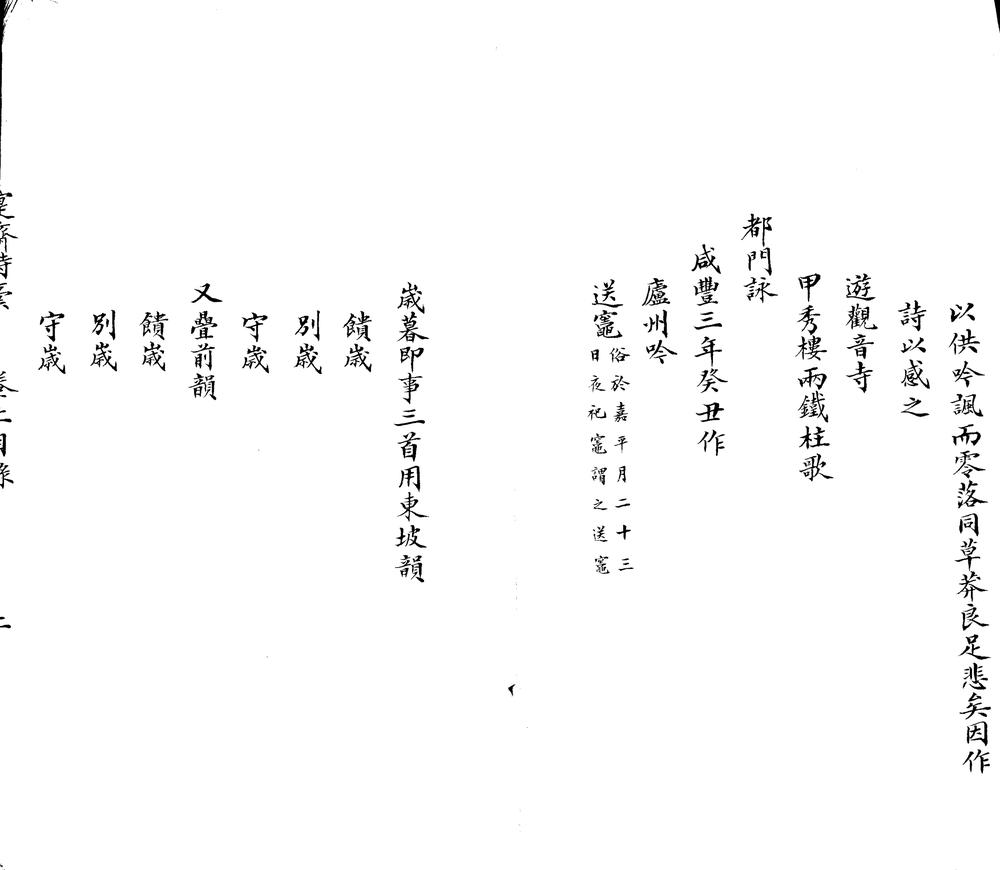 以供吟諷而零落同草莽良足悲矣因作
詩以感之
遊觀音寺
甲秀樓兩鐵柱歌
都門詠
咸豐三年癸丑作
廬州吟
送竈俗於嘉平月二十三
日夜祀竈謂之送竈
歲暮即事三首用東坡韻
饋歲
別歲
守歲
又疊前韻
饋歲
別歲
守歲
卷二目錄
二